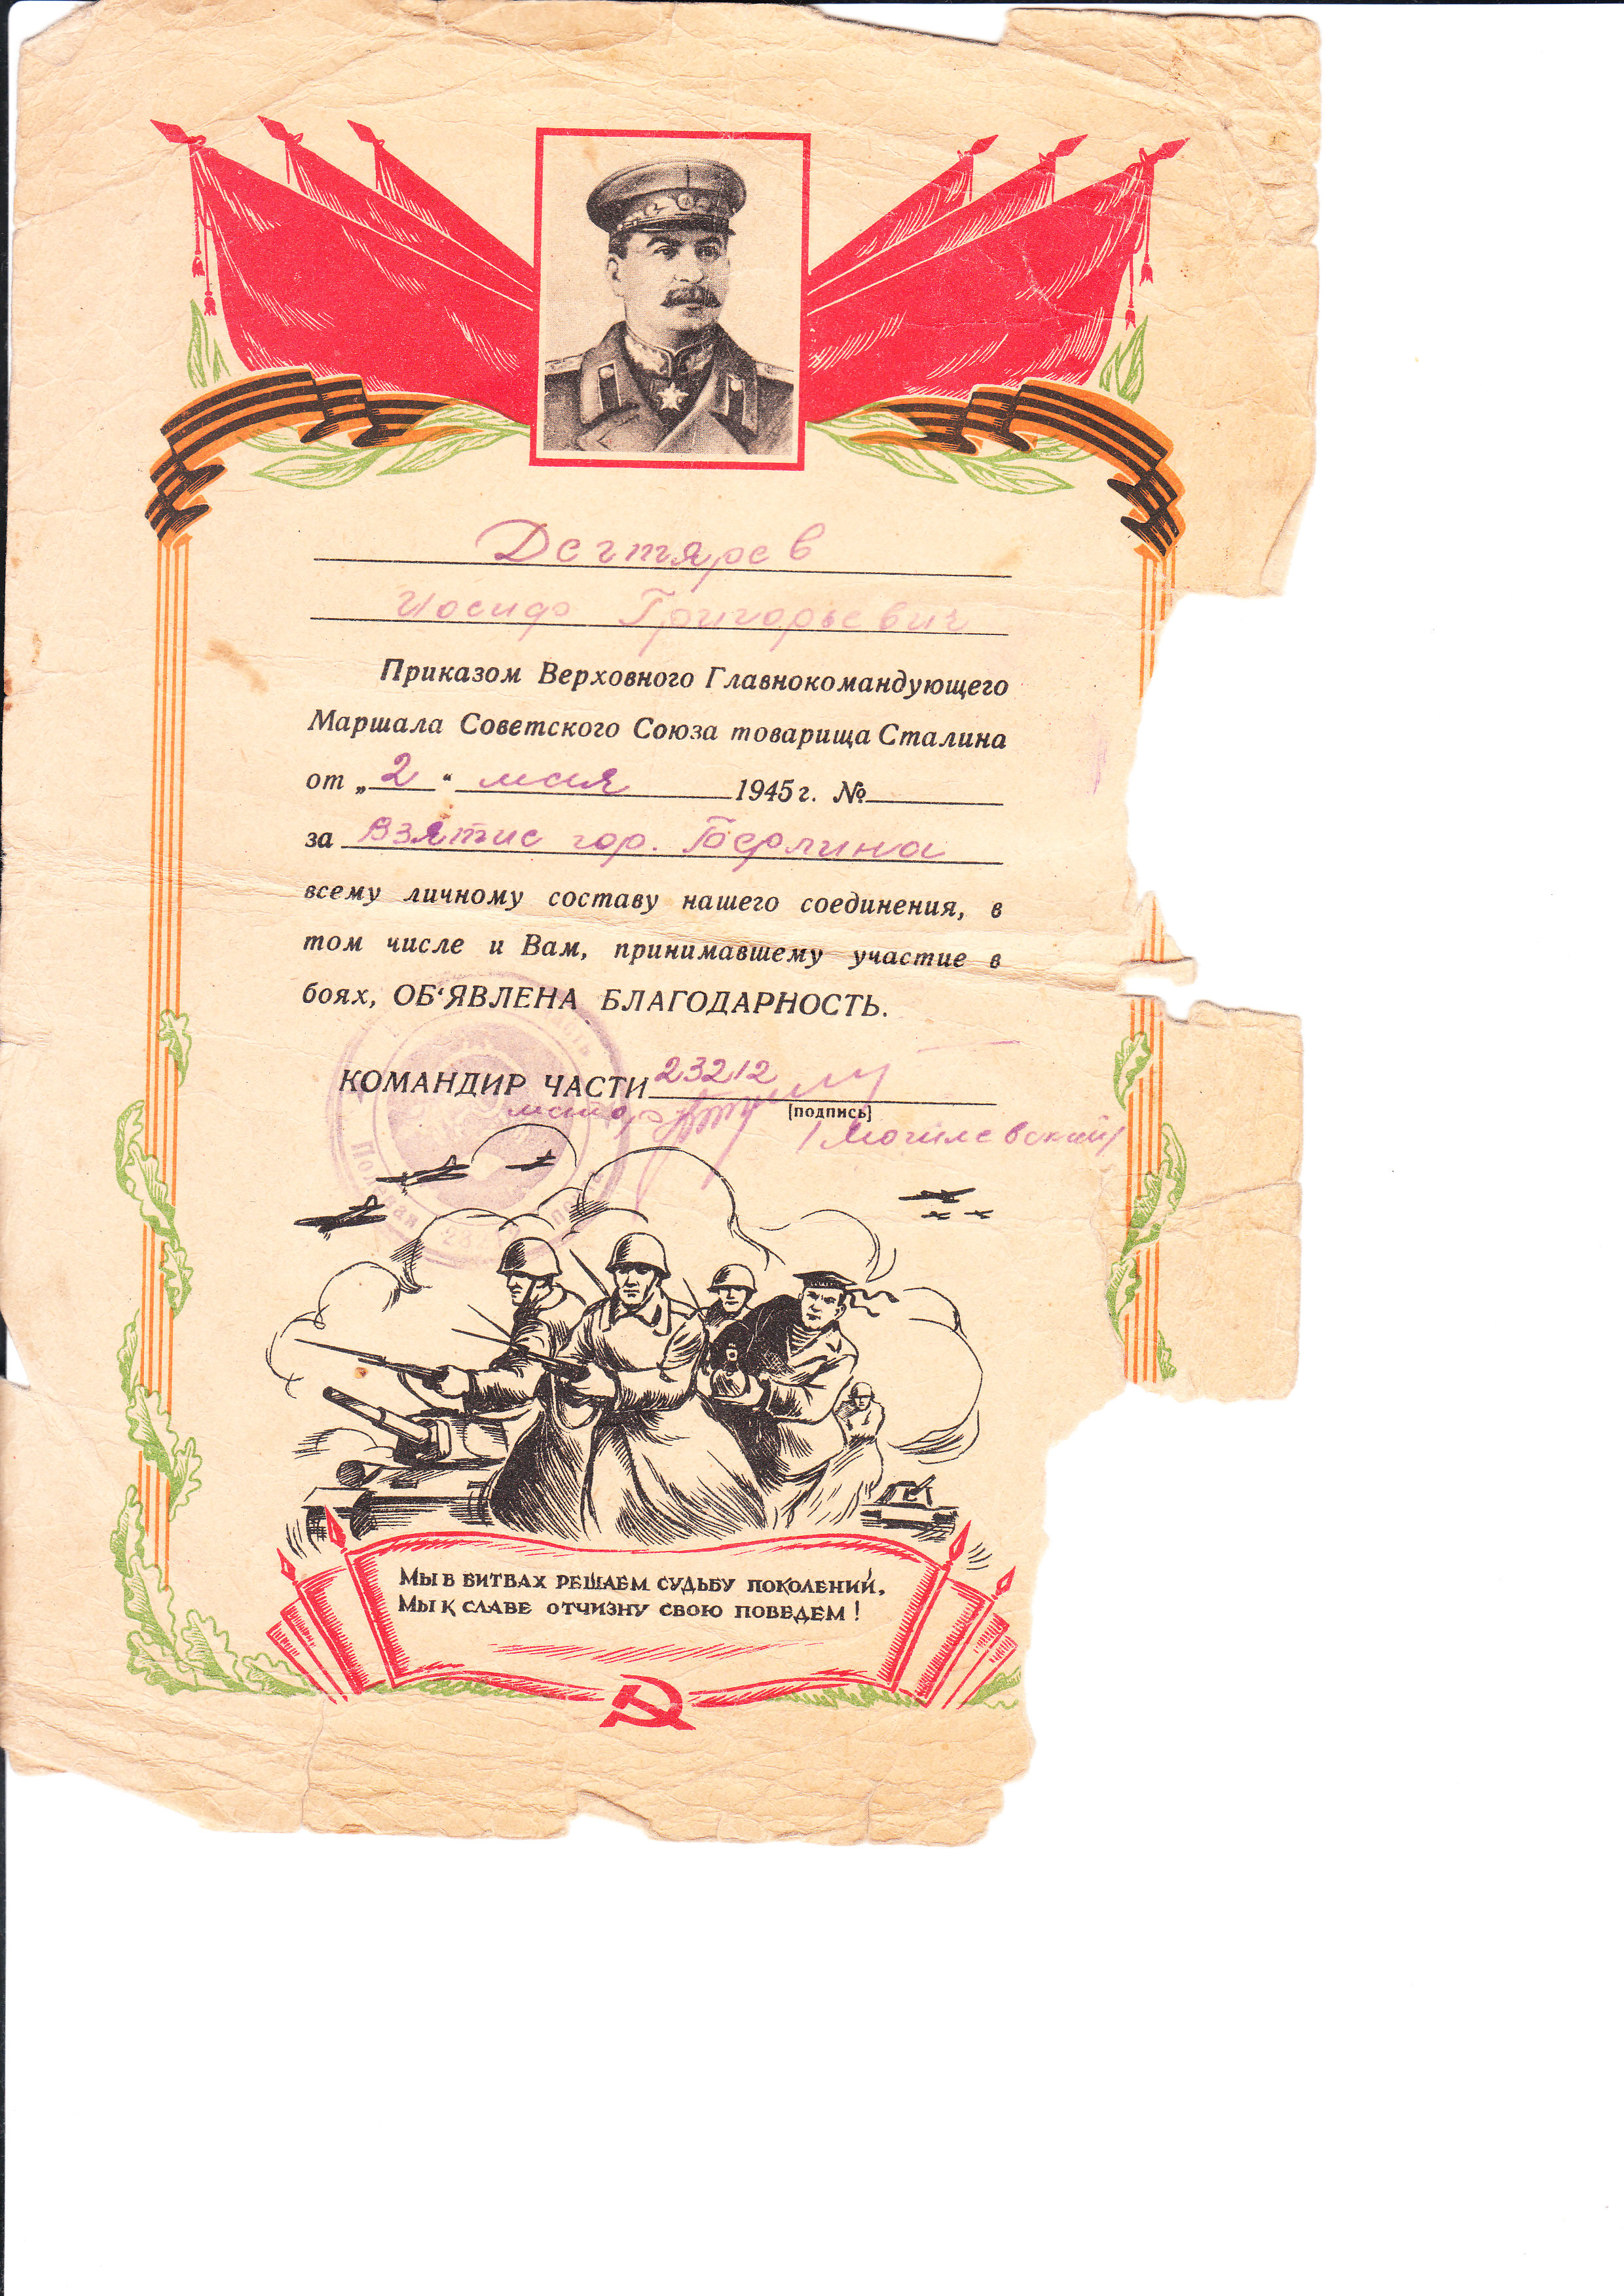 Дегтярев
Иосиф Григорьевич
Приказом Верховного Главнокомандующего
Маршала Советского Союза товарища Сталина
от „2“ мая 1945 г. №
за взятие гор. Берлина
всему личному составу нашего соединения, в
том числе и Вам, принимавшему участие в
боях, ОБ‘ЯВЛЕНА БЛАГОДАРНОСТЬ.
КОМАНДИР ЧАСТИ 23212
майор
[подпись]
/Могилевский/
Полевая
МЫ В БИТВАХ РЕШАЕМ СУДЬБУ ПОКОЛЕНИЙ,
МЫ К СЛАВЕ ОТЧИЗНУ СВОЮ ПОВЕДЕМ!